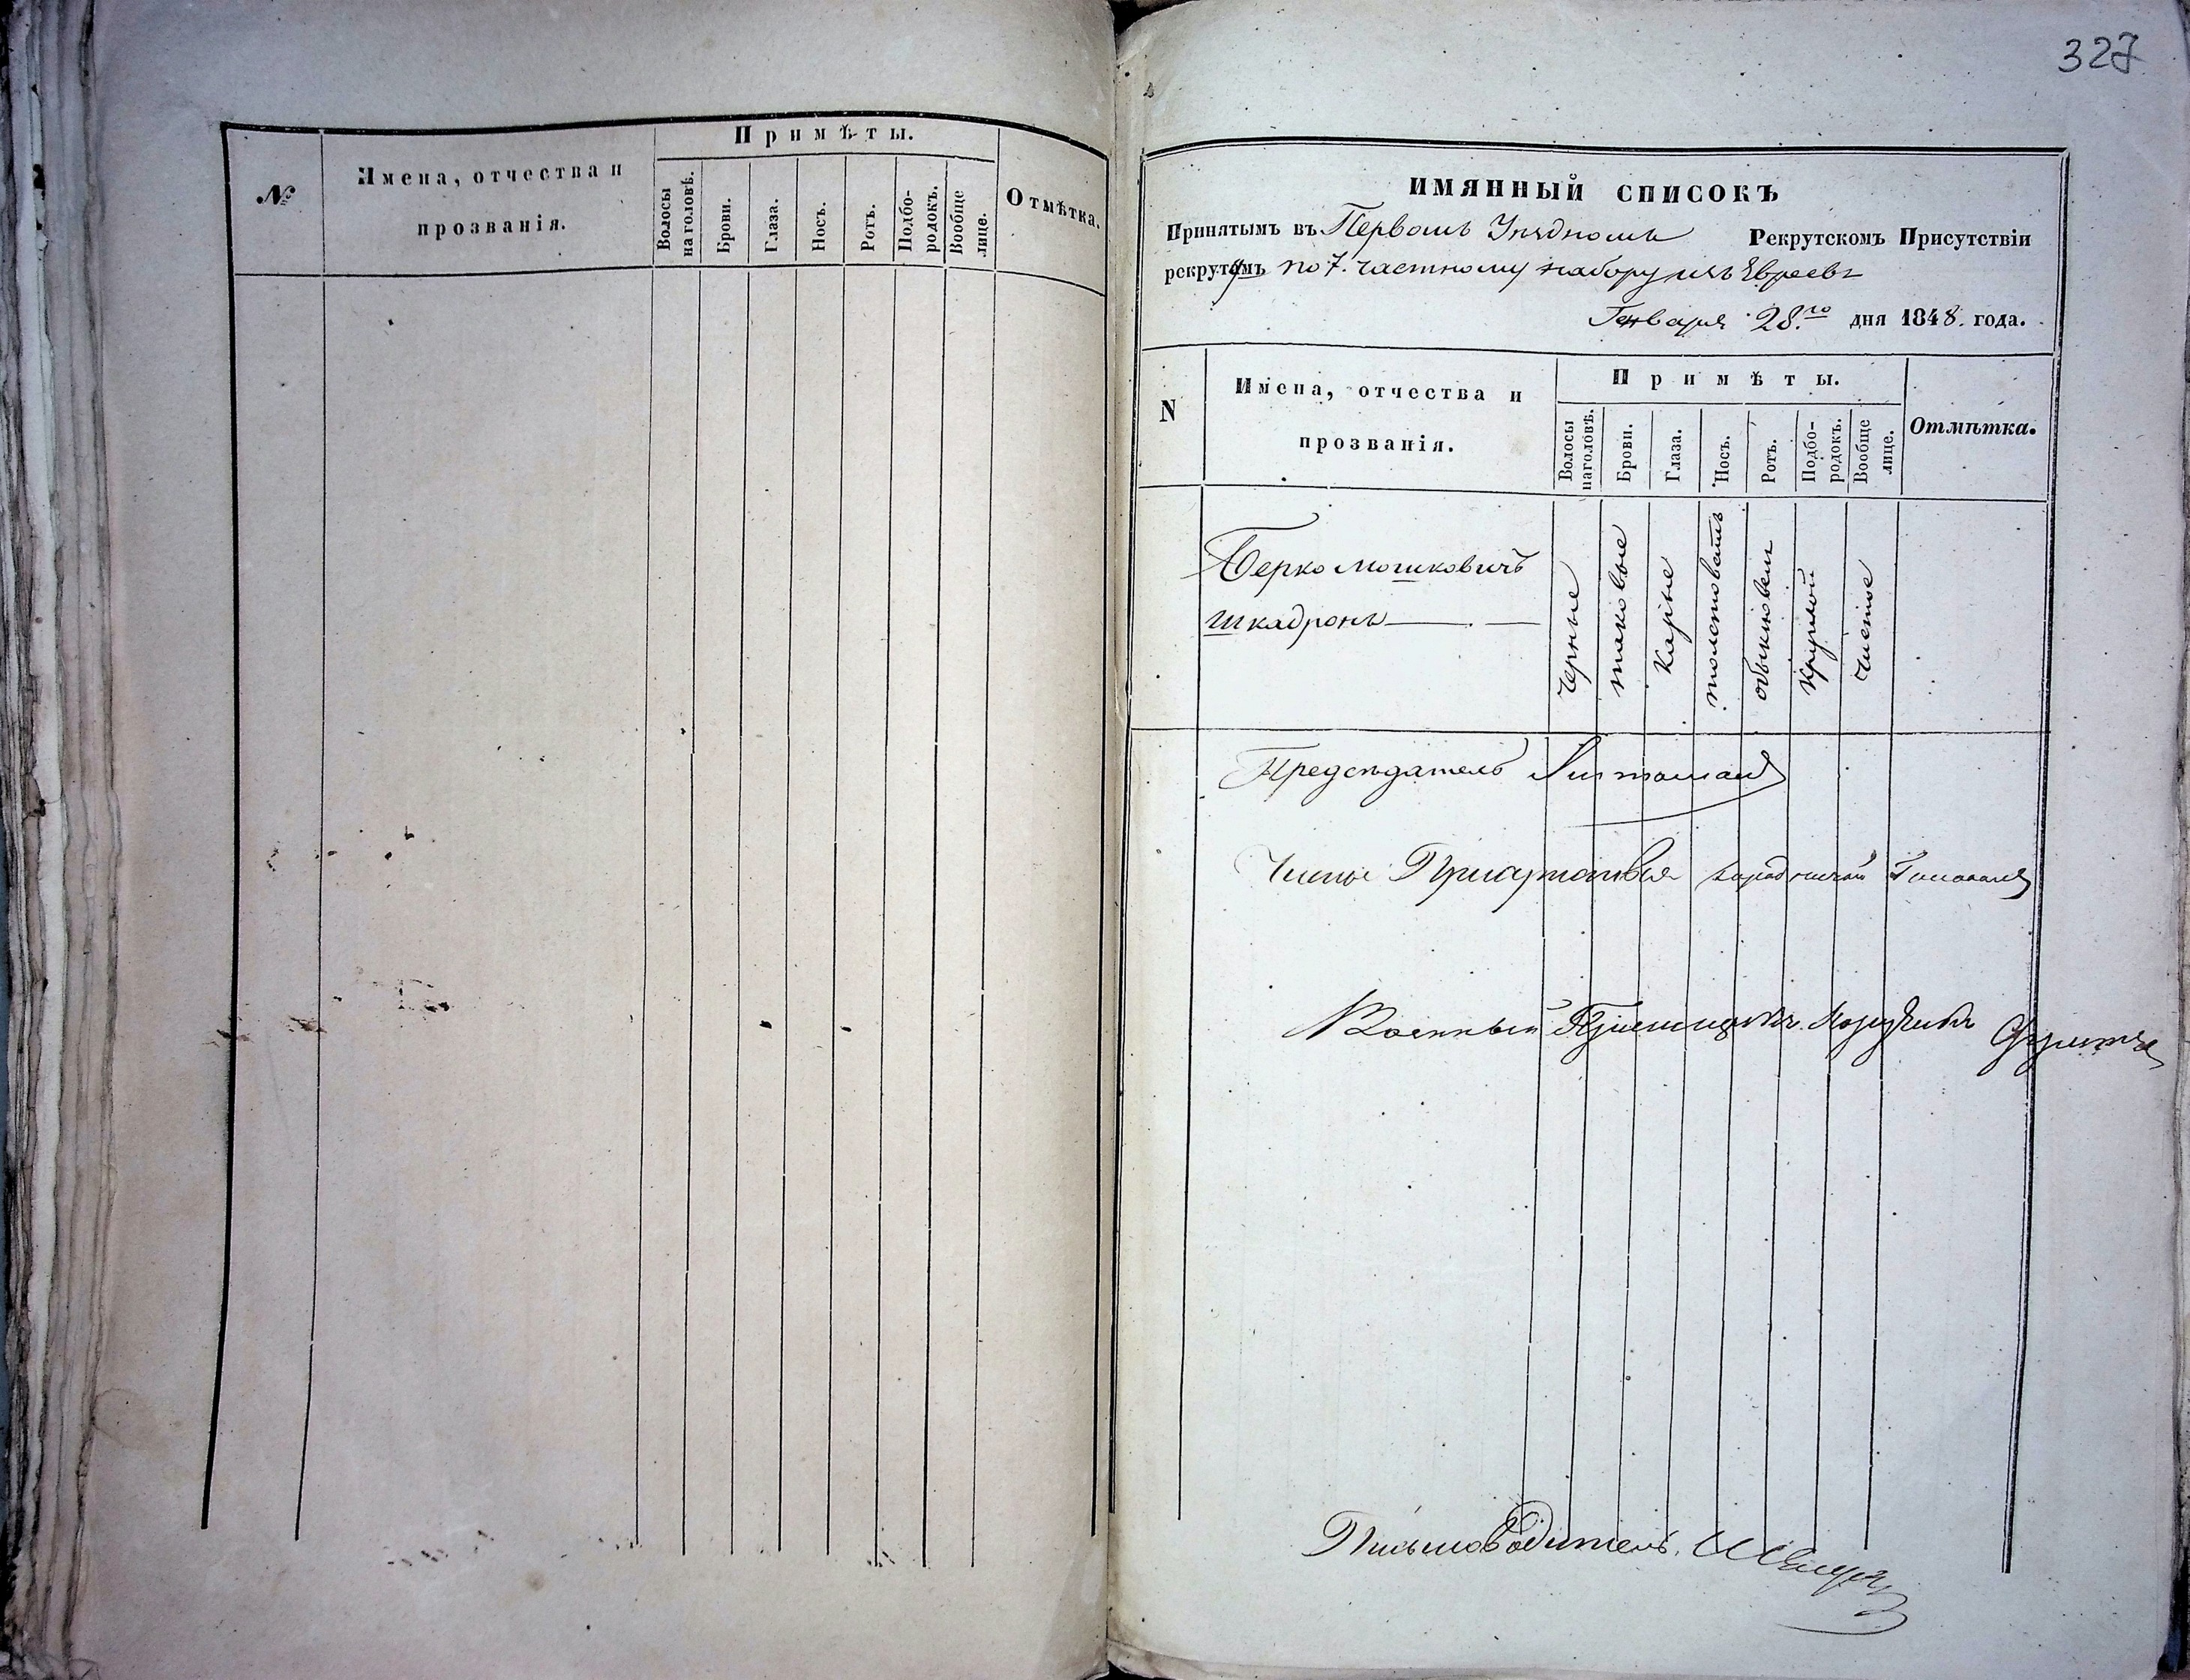 №
Имена, отчества и
прозванія.
Примѣты.
Волосы
на головѣ.
Брови.
Глаза.
Носъ.
Ротъ.
Подбо-
родокъ.
Вообще
лице.
Отмѣтка.
327
ИМЯННЫЙ СПИСОКЪ
Принятымъ въ Первомъ Уѣздномъ Рекрутскомъ Присутствіи
рекрутамъ по 7. частному набору изъ Евреевъ
Генваря 28.го дня 1848. года.
N
Имена, отчества и
прозванія.
Примѣты.
Волосы
на головѣ.
Брови.
Глаза.
Носъ.
Ротъ.
Подбо-
родокъ.
Вообще
лице.
Отмѣтка.
Берко Мошковичъ
Шкадронъ
черные
таковые
Каріе
толстоватъ
обыкновен
круглой
чистое
Предсѣдатель
Члены Присутствія городничій
Военный Пріемщикъ. Поручикъ
Письмоводитель.